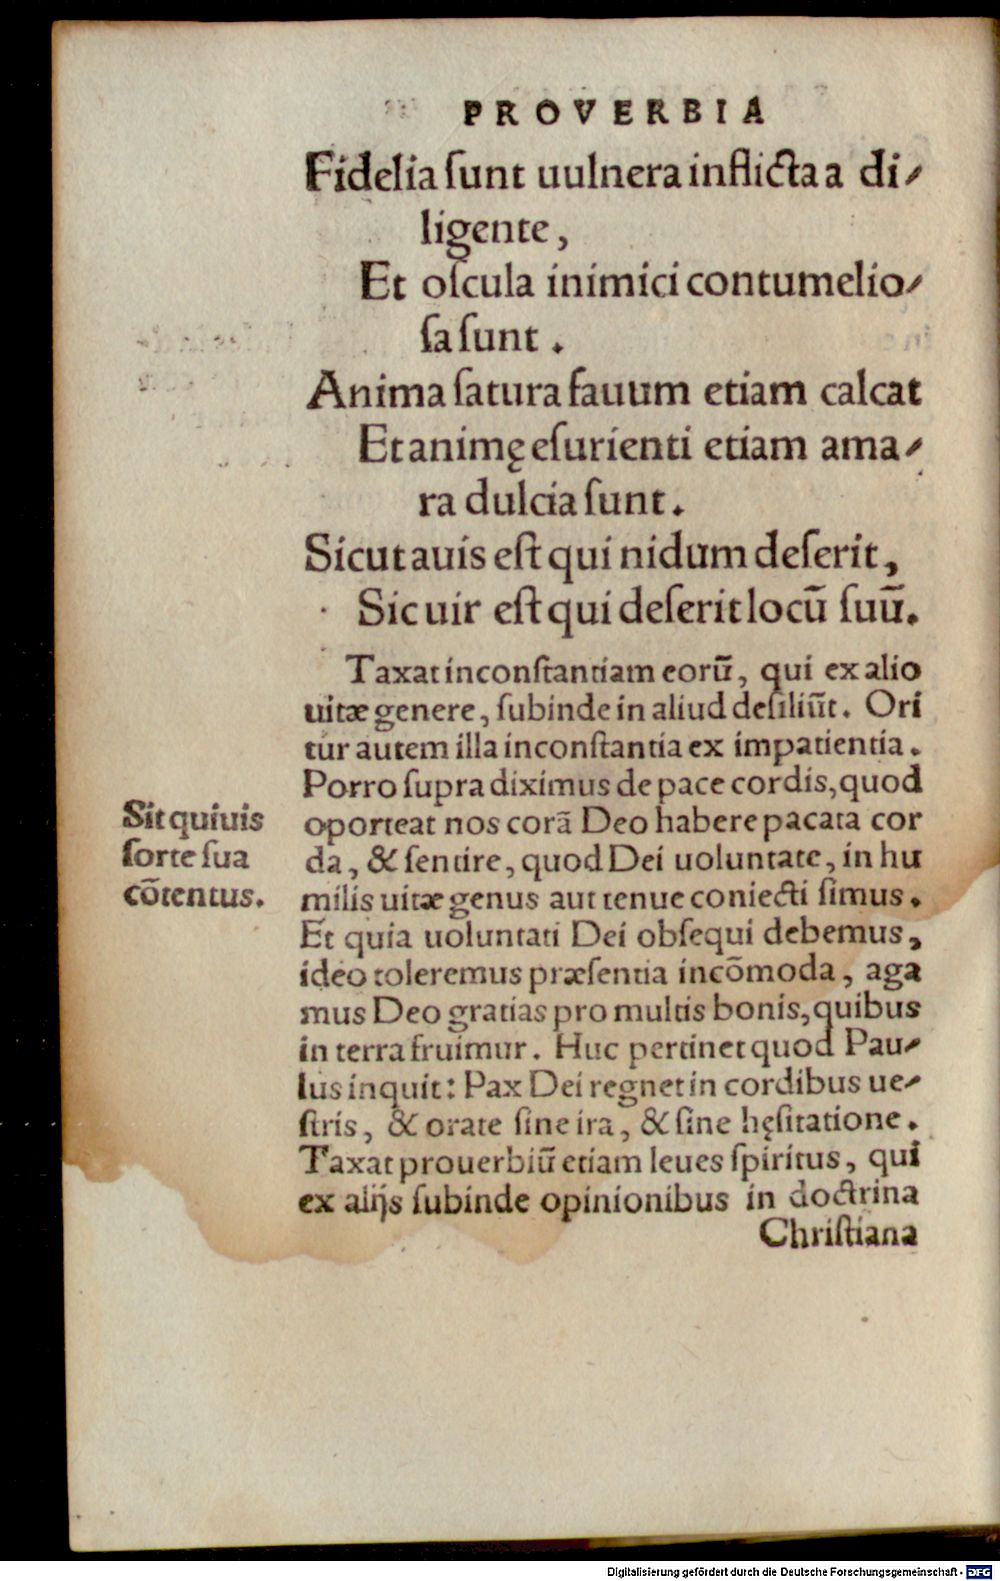 PROVERBIA
Fidelia ſunt uulnera inflicta a di⸗
ligente,
Et oſcula inimici contumelio⸗
ſa ſunt.
Anima ſatura fauum etiam calcat
Et animę eſurienti etiam ama⸗
ra dulcia ſunt.
Sicut auis eſt qui nidum deſerit,
Sic uir eſt qui deſerit locū ſuū.
Taxat inconſtantiam eorū, qui ex alio
uitæ genere, ſubinde in aliud deſiliūt. Ori
tur autem illa inconſtantia ex impatientia.
Porro ſupra diximus de pace cordis, quod
oporteat nos corā Deo habere pacata cor
da, & ſentire, quod Dei uoluntate, in hu
milis uitæ genus aut tenue coniecti ſimus.
Et quia uoluntati Dei obſequi debemus,
ideo toleremus præſentia incōmoda, aga
mus Deo gratias pro multis bonis, quibus
in terra fruimur. Huc pertinet quod Pau⸗
lus inquit: Pax Dei regnet in cordibus ue⸗
ſtris, & orate ſine ira, & ſine hęſitatione.
Taxat prouerbiū etiam leues ſpiritus, qui
ex alijs ſubinde opinionibus in doctrina
Chriſtiana
Sit quiuis
ſorte ſua
cōtentus.
Digitalisierung gefördert durch die Deutsche Forschungsgemeinschaft - DFG